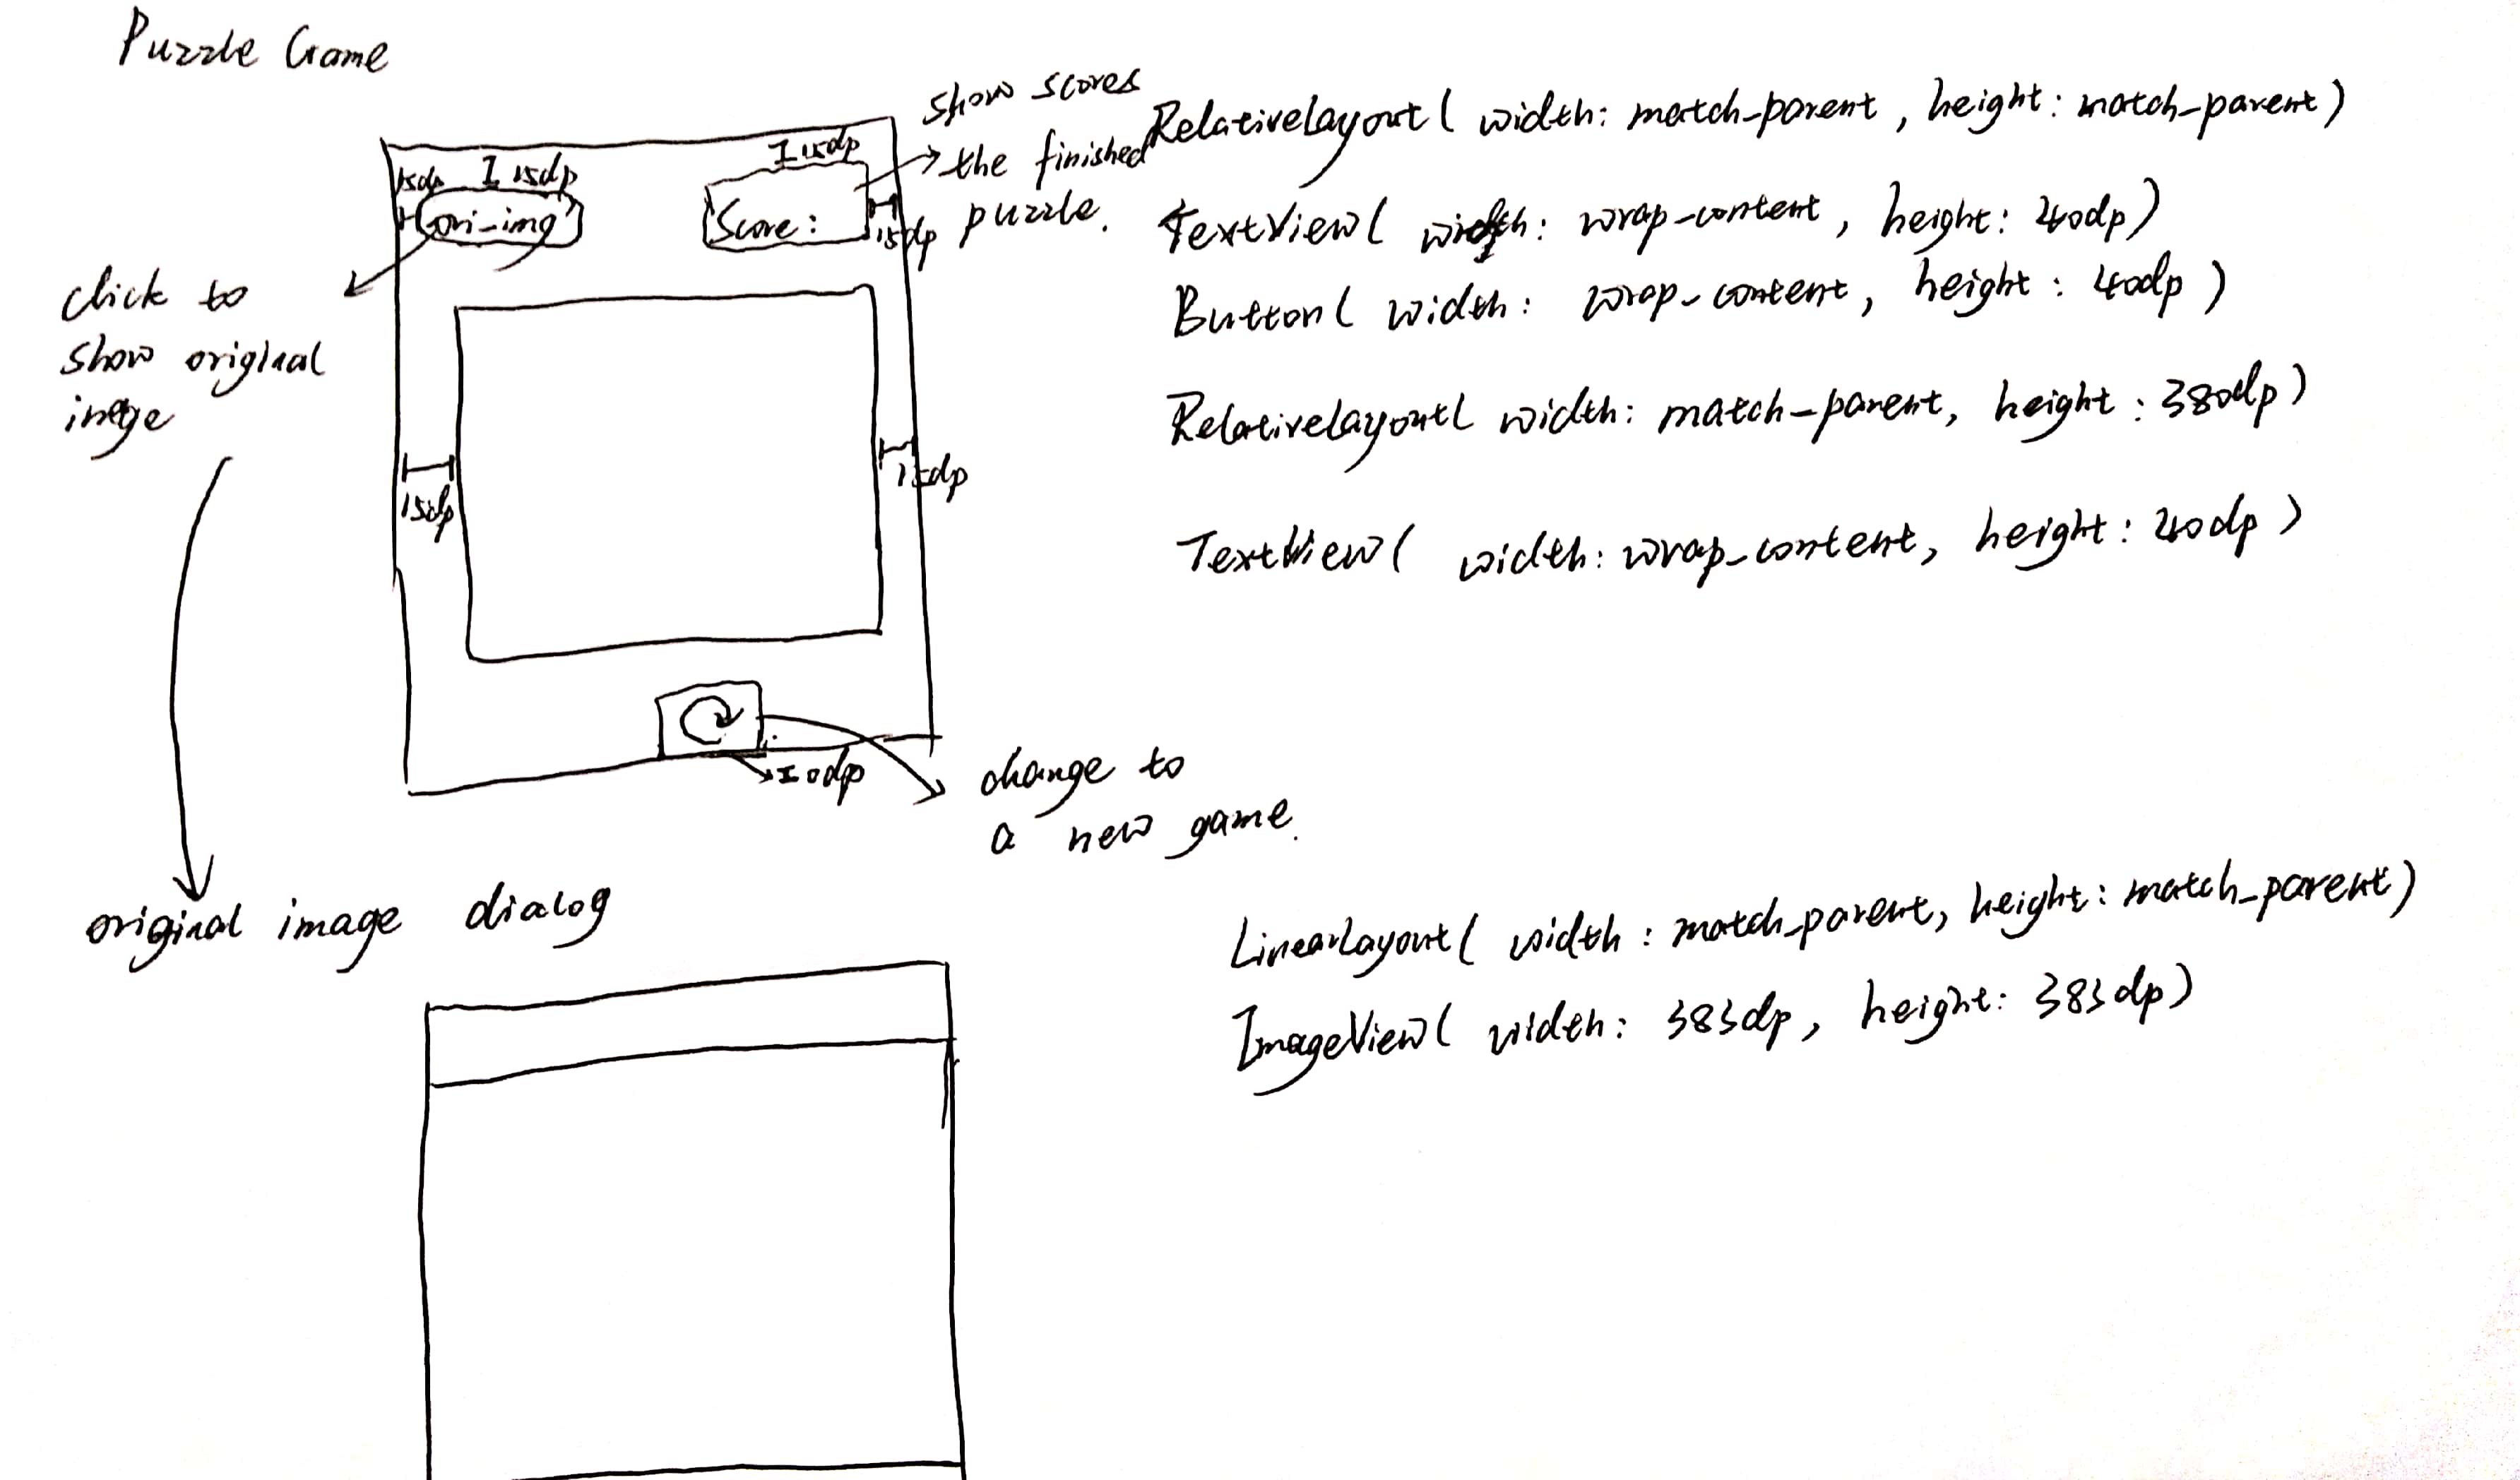 Puzzle Game
show scores
the finished
puzzle.
15dp
15dp
15dp
ori-img
Score:
15dp
click to
show original
imge
15dp
15dp
0dp
change to
a new game.
RelativeLayout( width: match-parent, height: match-parent)
TextView( width: wrap-content, height: 40dp)
Button( width: wrap-content, height: 40dp)
RelativeLayout( width: match-parent, height: 380dp)
TextView( width: wrap_content, height: 40dp)
original image dialog
LinearLayout( width: match_parent, height: match_parent)
ImageView( width: 383dp, height: 383dp)